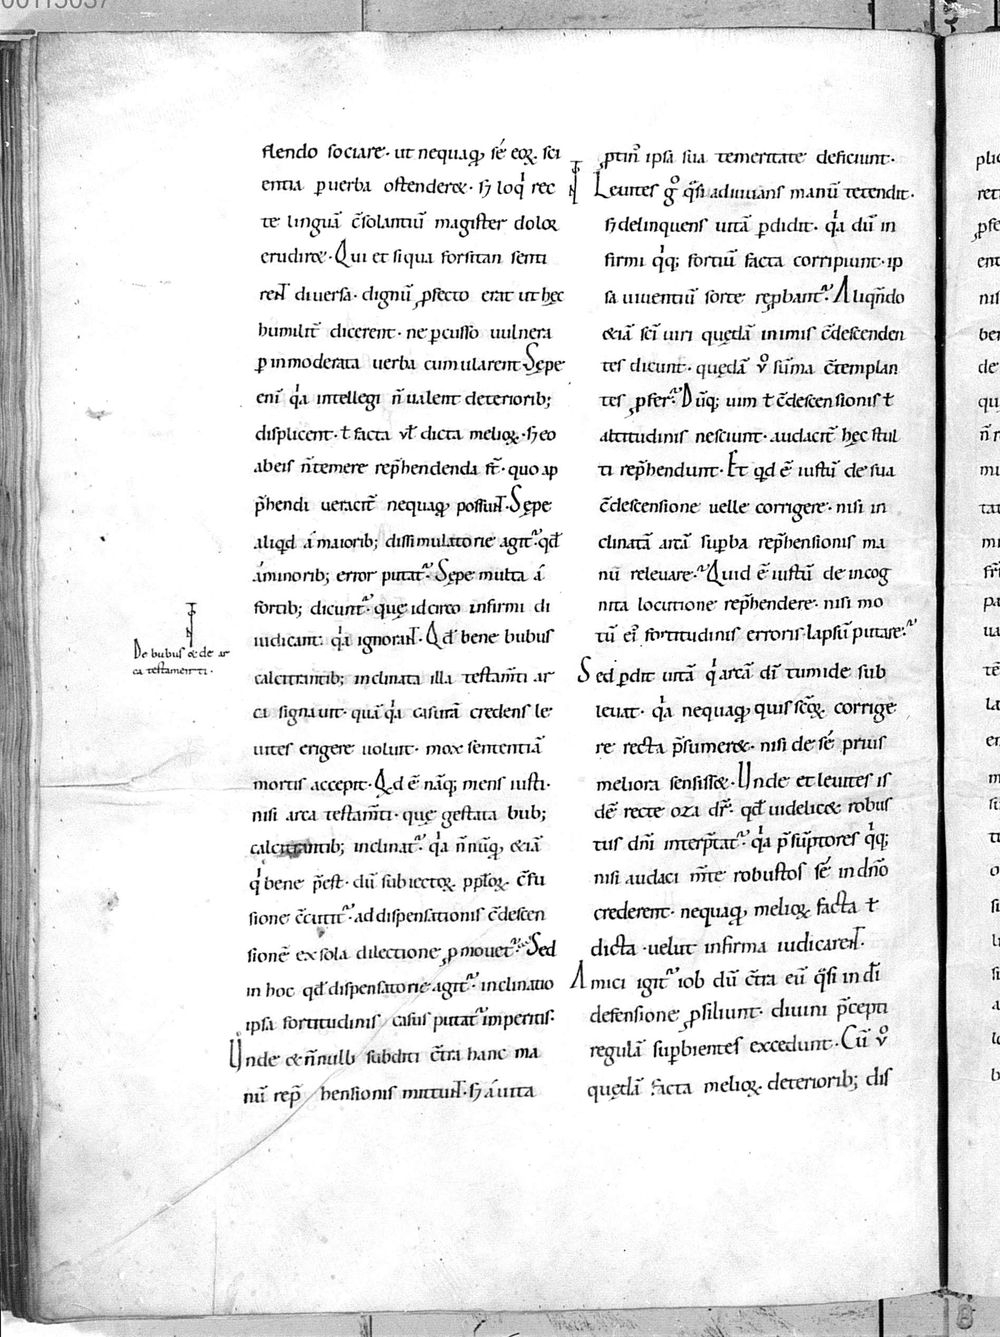 00115037
flendo sociare· ut nequaq̄ sé eoꝝ sci
entia ꝓ uerba ostenderet· s; loqⁱ rec
te linguā c̄solantiū magister doloꝛ
erudiret· Qui et si qua forsitan senti
rent diuersa· dignū ꝓfecto erat ut hęc
humilit̄ dicerent· ne ꝑcusso uulnera
ꝑ inmoderata uerba cumularent· Sępe
enī qⁱa intellegi n̄ ualent deteriorib;
displicent· ł facta uł dicta melioꝝ· s; eo
ab eis n̄ temere rep̄hendenda st̄· quo ap
p̄hendi ueracit̄ nequaq̄ possunt· Sępe
aliqd a maiorib; dissimulatorie agit᷑· qđ
a minorib; error putat᷑· Sępe multa á
fortib; dicunt᷑· quę idcirco infirmi di
iudicant· qⁱa ignorant· Qđ bene bubus
calcitrantib; inclinata illa testam̄ti ar
ca signauit· quā qⁱa casurā credens le
uites erigere uoluit· mox sententiā
mortis accepit· Qd ē nāq; mens iusti·
nisi arca testam̄ti· quę gestata bub;
calcitrantib; inclinat᷑· qⁱa n̄nūq̄ etiā
qⁱ bene p̄est· dū subiectoꝝ pploꝝ c̄fu
sione c̄cutit᷑· ad dispensationis c̄descen
sionē ex sola dilectione ꝓmouet᷑· Sed
in hoc qđ dispensatorie agit᷑· inclinatio
ipsa fortitudinis casus putat᷑ imperitis·
Unde et n̄nulli subditi c̄tra hanc ma
nū rep̄hensionis mittunt· s; a uita
De bubus et de ar
ca testamenti·
ꝓtin̄ ipsa sua temeritate deficiunt·
Leuites gͦ q̄si adiuuans manū tetendit·
s; delinquens uitā ꝑdidit· qⁱa dū in
firmi qⁱq; fortiū facta corripiunt· ip
sa uiuentiū sorte rep̱bant᷑· Aliqn̄do
etiā sc̄i uiri quędā in imis c̄descenden
tes dicunt· quędā vͦ sūma c̄templan
tes ꝓfer᷑· Dūq; uim ł c̄descensionis ł
altitudinis nesciunt· audacit̄ hęc stul
ti rep̄hendunt· Et qd ē iustū de sua
c̄descensione uelle corrigere· nisi in
clinatā arcā suꝑba rep̄hensionis ma
nū releuare· Quid ē iustū de incog
nita locutione rep̄hendere· nisi mo
tū eiꝰ fortitudinis erroris lapsū putare·
Sed ꝑdit uitā qⁱ arcā dī tumide sub
leuat· qⁱa nequaq̄ quis sc̄oꝝ corrige
re recta p̄sumeret· nisi de sé prius
meliora sensisset· Unde et leuites is
dē recte oza dr̄· qđ uidelicet robus
tus dn̄i interp̄tat᷑· qⁱa p̄sūptores qⁱq;
nisi audaci m̄te robustos sé in dn̄o
crederent· nequaq̄ melioꝝ facta ł
dicta uelut infirma iudicarent·
Amici igit᷑ iob dū c̄tra eū q̄si in dī
defensione ꝓsiliunt· diuini p̄cepti
regulā suꝑbientes excedunt· Cū vͦ
quędā facta melioꝝ deteriorib; dis